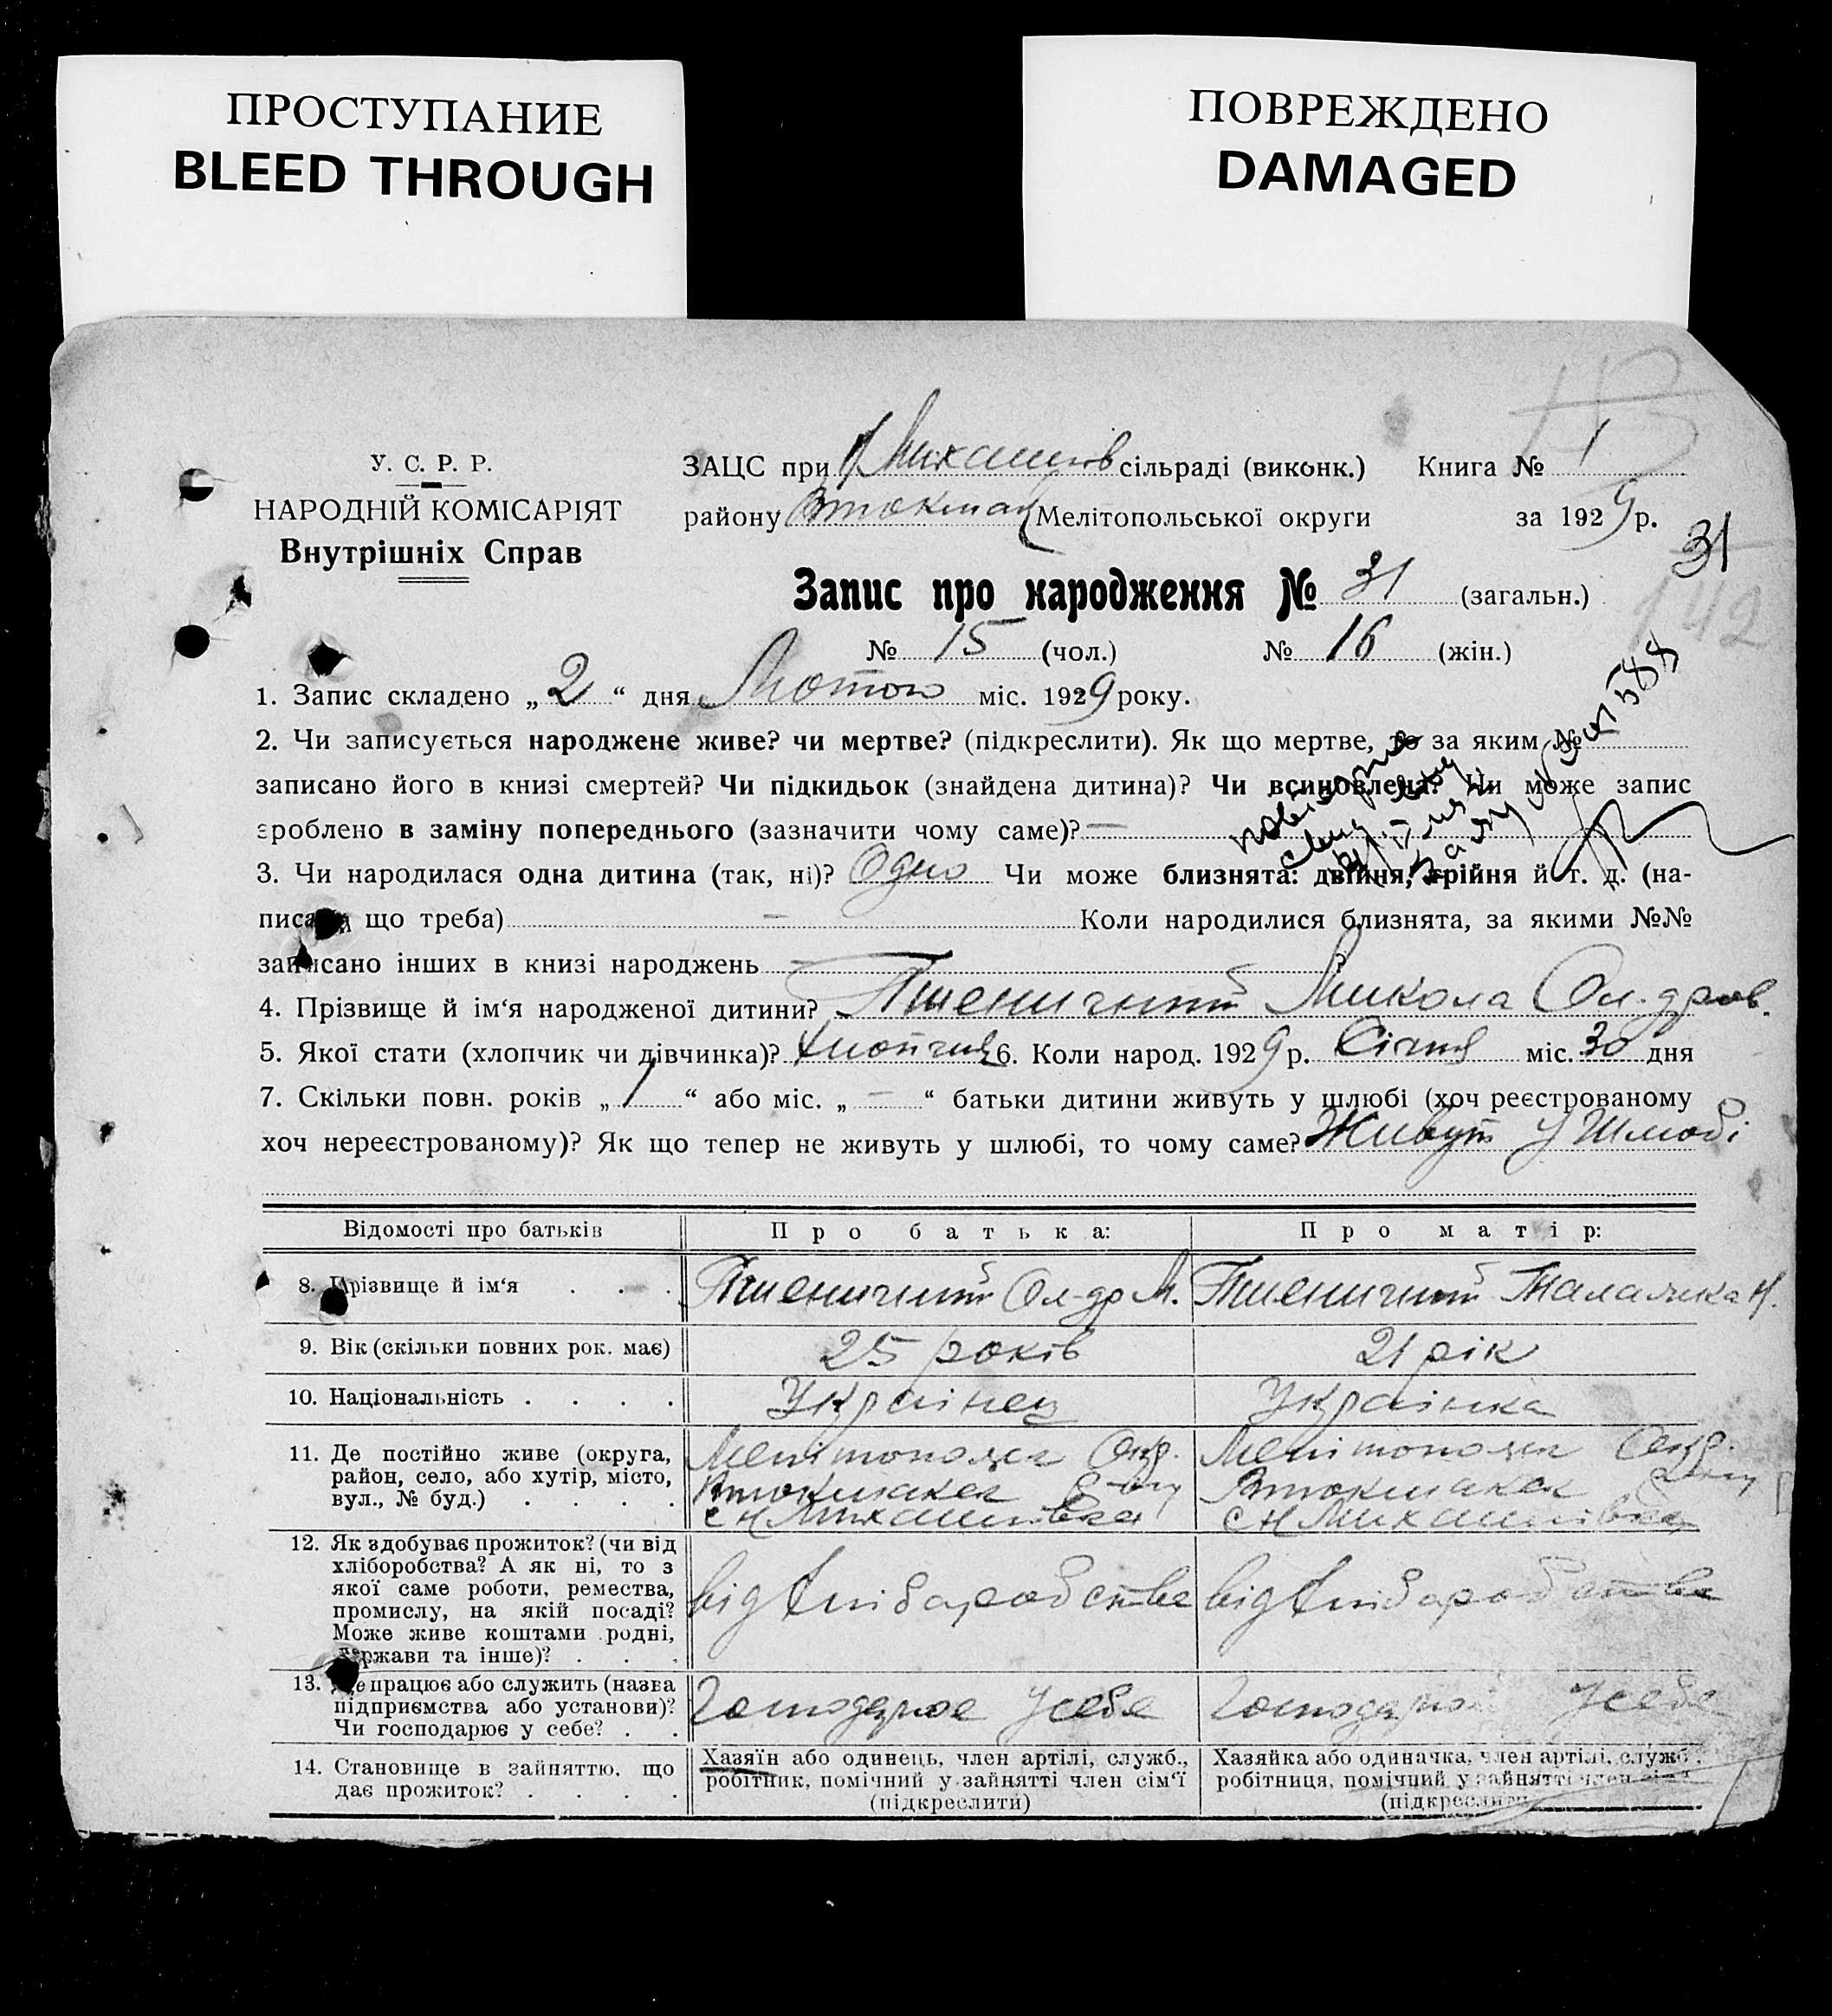 ПРОСТУПАНИЕ
BLEED THROUGH
ПОВРЕЖДЕНО
DAMAGED
У. С. Р. Р.
НАРОДНІЙ КОМІСАРІЯТ
Внутрішніх Справ
ЗАЦС при Н Михайлів сільраді (виконк.) Книга № 1
району Втокмац Мелітопольської округи за 1929 р.
31
Запис про народження № 31 (загальн.)
142
№ 15 (чол.) № 16 (жін.)
1. Запис складено „ 2 “ дня Лютого міс. 1929 року.
2. Чи записується народжене живе? чи мертве? (підкреслити). Як що мертве, то за яким №
записано його в книзі смертей? Чи підкидьок (знайдена дитина)? Чи всиновлена? Чи може запис
зроблено в заміну попереднього (зазначити чому саме)? —
3. Чи народилася одна дитина (так, ні)? Одно Чи може близнята: двійня, трійня й т. д. (на-
писати що треба) — Коли народилися близнята, за якими №№
записано інших в книзі народжень —
4. Прізвище й ім‘я народженої дитини? Пшеничний Микола Ол-дров.
5. Якої стати (хлопчик чи дівчинка)? Хлопчик 6. Коли народ. 1929 р. Січня міс. 30 дня
7. Скільки повн. років „ 1 “ або міс. „ — “ батьки дитини живуть у шлюбі (хоч реєстрованому
хоч нереєстрованому)? Як що тепер не живуть у шлюбі, то чому саме? Живут у Шлюбі
Відомості про батьків Про батька: Про матір:
8. Прізвище й ім‘я . . . Пшеничний Ол-др М. Пшеничний Палажка Н.
9. Вік (скільки повних рок. має) 25 років 21 рік
10. Національність . . . . Українец Українка
11. Де постійно живе (округа,
район, село, або хутір, місто,
вул., № буд.) . . . .
Мелітопольск Окр.
Втокмакск р-ну
с Н Михайлівка
Мелітопольск Окр.
Втокмакск р-ну
с Н Михайлівка
12. Як здобуває прожиток? (чи від
хліборобства? А як ні, то з
якої саме роботи, ремества,
промислу, на якій посаді?
Може живе коштами родні,
держави та інше)? . . .
від хліборобства від хліборобства
13. Де працює або служить (назва
підприємства або установи)?
Чи господарює у себе? . .
Господарює у себе Господарює у себе
14. Становище в зайняттю, що
дає прожиток? . . . .
Хазяїн або одинець, член артілі, служб.,
робітник, помічний у зайнятті член сім‘ї
(підкреслити)
Хазяйка або одиначка, член артілі, служб.,
робітниця, помічний у зайнятті член сім‘ї
(підкреслити)